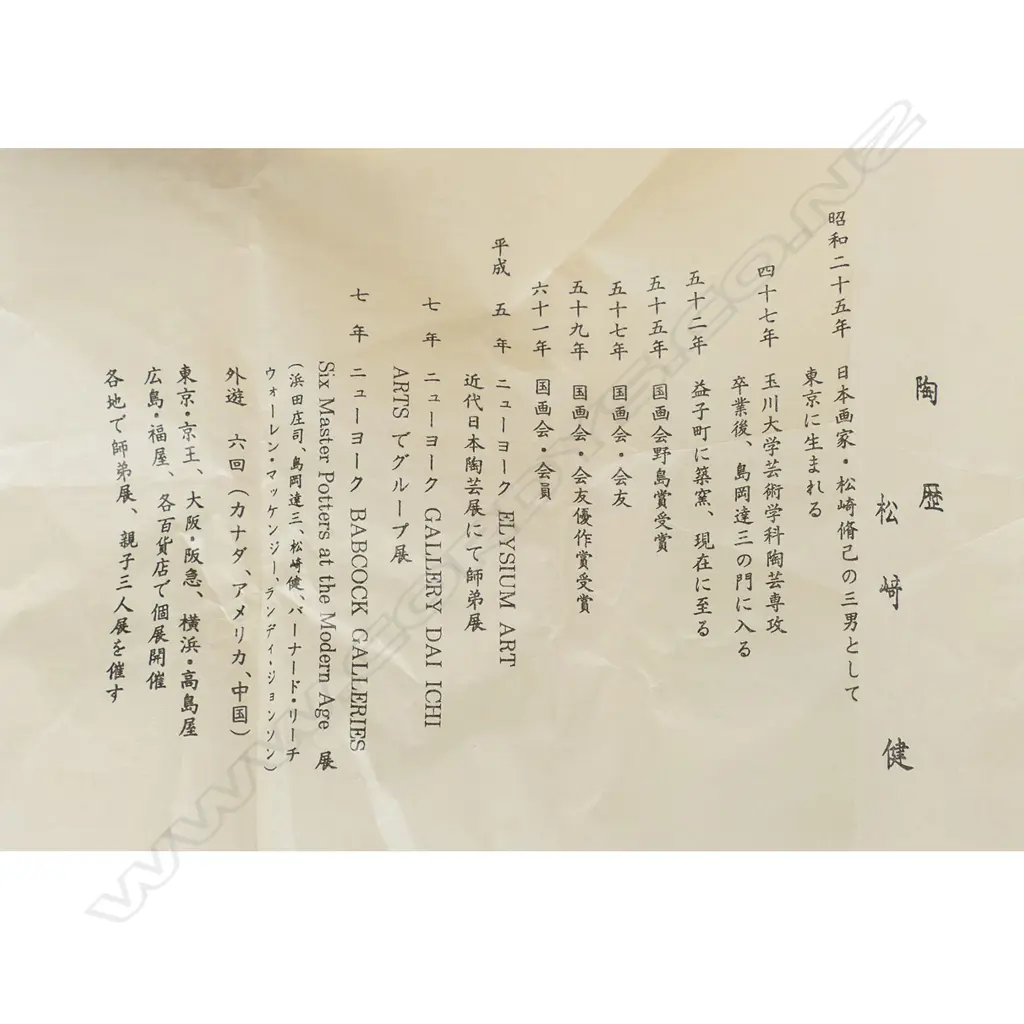 陶歴
松﨑健
昭和二十五年 日本画家・松﨑脩己の三男として
東京に生まれる
四十七年 玉川大学芸術学科陶芸専攻
卒業後、島岡達三の門に入る
五十二年 益子町に築窯、現在に至る
五十五年 国画会野島賞受賞
五十七年 国画会・会友
五十九年 国画会・会友優作賞受賞
六十一年 国画会・会員
平成 五年 ニューヨーク ELYSIUM ART
近代日本陶芸展にて師弟展
七年 ニューヨーク GALLERY DAI ICHI
ARTSでグループ展
七年 ニューヨーク BABCOCK GALLERIES
Six Master Potters at the Modern Age 展
(浜田庄司、島岡達三、松﨑健、バーナード・リーチ
ウォーレン・マッケンジー、ランディ・ジョンソン)
外遊 六回(カナダ、アメリカ、中国)
東京・京王、大阪・阪急、横浜・高島屋
広島・福屋、各百貨店で個展開催
各地で師弟展、親子三人展を催す